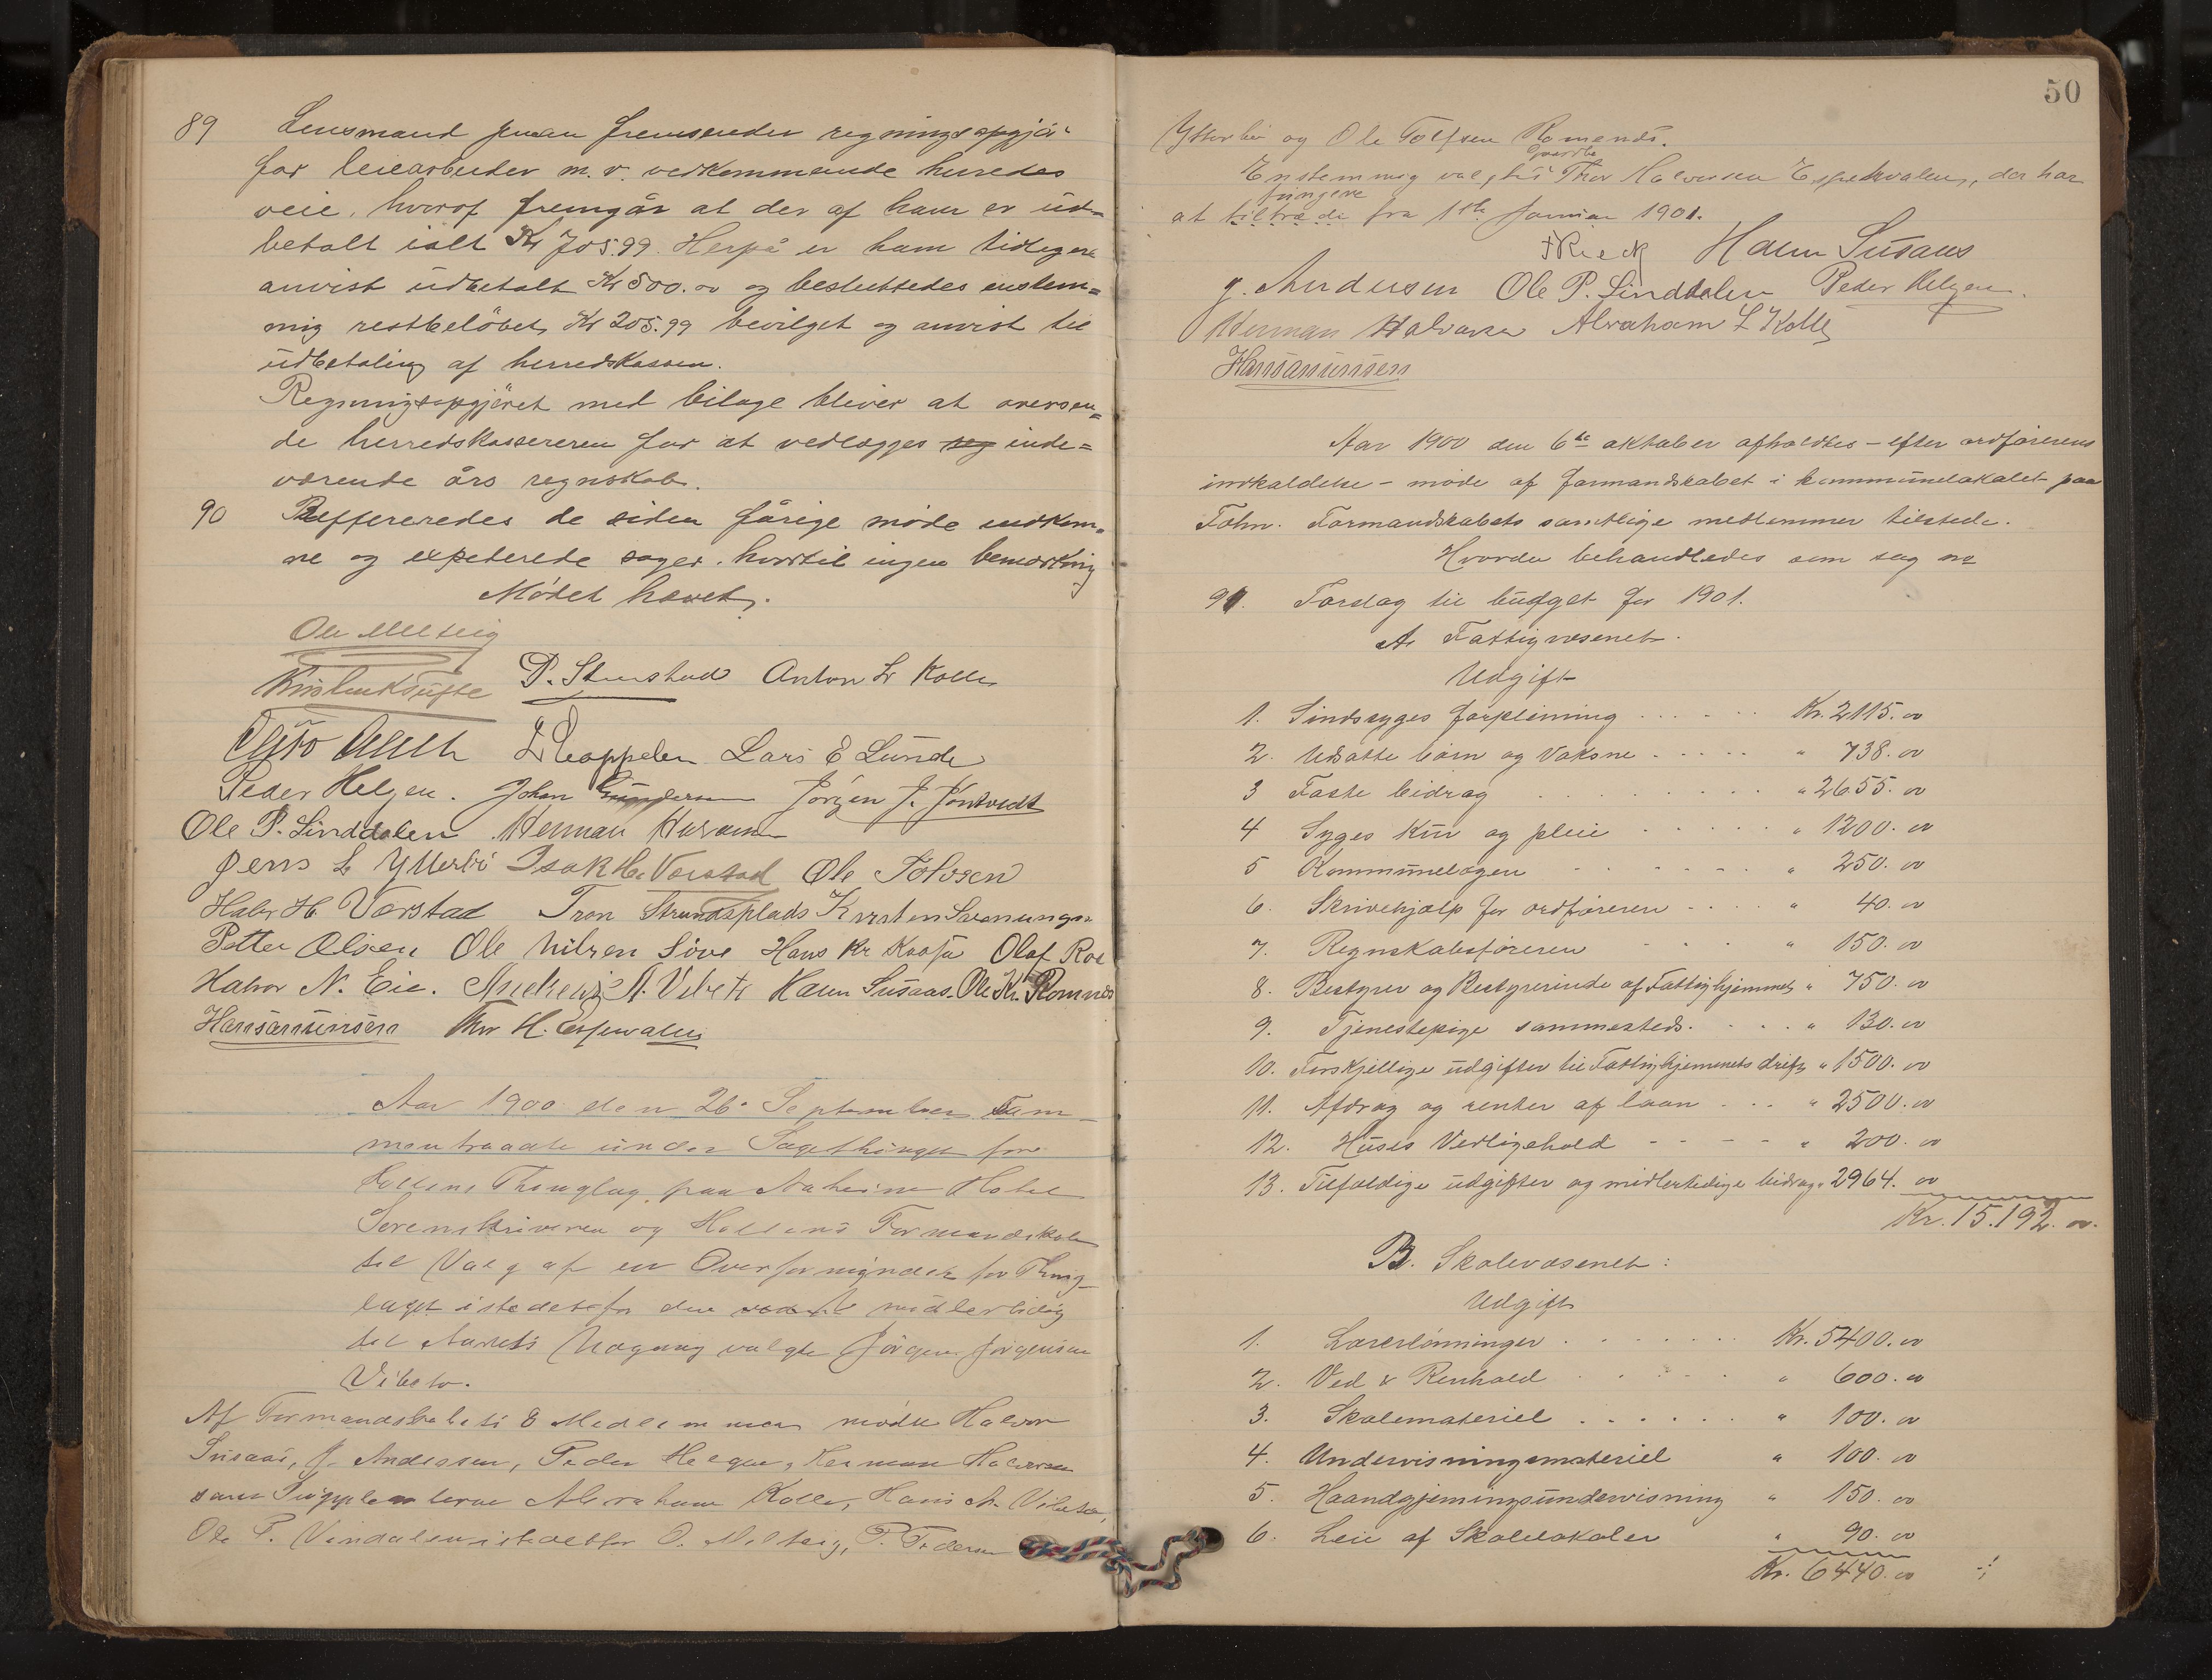 89 Lensmand fremsender regningsopgjør
for veiearbeider m. v. vedkommende herredes
veie, hvoraf fremgår at der af ham er ud=
betalt ialt Kr 705.99. Herpå er ham tidligere
anvist udbetalt Kr 500.00 og besluttedes enstem=
mig restbeløbet, Kr 205.99 bevilget og anvist til
udbetaling af herredskassen.
Regningsopgjøret med bilage bliver at oversen=
de herredskassereren for at vedlægges inde=
værende års regnskab.
90 Reffereredes de siden forige møde indkom=
ne og expederede sager, hvortil ingen bemærkning
Mødet hævet.
Ole Melteig
P. Stenstad Anton L. Kolle
Lars E Lunde
Peder Helgen. Johan Jørgen J. Jøntvedt
Ole P. Linddalen Herman Halvorsen
Jens L Ytterbø Isak H. Værstad Ole Tolvsen
Halvor H. Værstad Tron Strandsplads Kirsten
Petter Olsen Ole Nilsen Sove Hans Kr Olaf Roe
Halvor N. Eie. Andreas N. Vibeto Halvor Susaas. Ole Kr. Romnes
Thor H. Espevalen
Aar 1900 den 26. September Sam
mentraadte under Sagethinget for
Hollens Thinglag paa Aaheim Hotel
Sorenskriveren og Hollens Formandskab
til Valg af en Overformynder for Thing
laget istedetfor den midlertidig
til Aarets Udgang valgte Jørgen Jørgensen
Vibeto.
Af Formandskabets 8 Medlemmer mødte Halvor
Susaas, J. Andersen, Peder Helgen, Herman Halvorsen
samt Supleanterne Abraham Kolle, Hans A. Vibeto,
Ole P. Lindalen istedetfor O. Melteig, P. Pedersen
50
Ytterbø og Ole Tolfsen Romenæs.
Enstemmig valgtes Thor Halvorsen Espedvalen, der har
fungere
at tiltræde fra 1ste Januar 1901.
Halvor Susaas
J. Andersen Ole P. Linddalen Peder Helgen.
Herman Halvorsen Abraham L Kolle
Aar 1900 den 6te oktober afholdtes – efter ordførerens
indkaldelse – møde af formandskabet i kommunelokalet paa
Tohn. Formandskabets samtlige medlemmer tilstede.
Hvorda behandledes som sag no
91. Forslag til budget for 1901.
A. Fattigvæsenet.
Udgift
1. Sindssyges forpleining Kr. 2115.00
2. Udsatte børn og Voksne " 738.00
3 Faste bidrag " 2655.00
4 Syges Kur og pleie " 1200.00
5 Kommunelægen " 250.00
6. Skrivehjælp for ordføreren " 40.00
7. Regnskabsføreren " 150.00
8. Bestyrer og Bestyrerinde af Fattighjemmet " 750.00
9. Tjenestepige sammesteds. " 130.00
10. Forskjellige udgifter til Fattighjemmets drift " 1500.00
11. Afdrag og renter af laan " 2500.00
12. Huses Vedligehold " 200.00
13. Tilfældige udgifter og midlertidige bidrag " 2964.00
Kr. 15.192.00.
B. Skolevæsenet:
Udgift
1. Lærerlønninger Kr. 5400.00
2. Ved & Renhold " 600.00
3. Skolemateriel " 100.00
4. Undervisningsmateriel " 100.00
5. Haandgjerningsundervisning " 150.00
6. Leie af Skolelokaler " 90.00
Kr. 6440.00